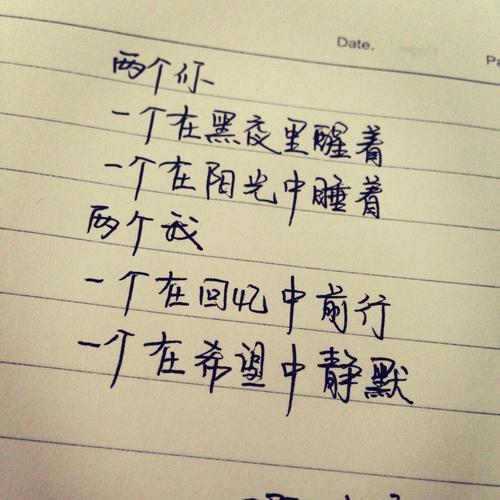 Date.
Pa
两个你
一个在黑夜里醒着
一个在阳光中睡着
两个我
一个在回忆中前行
一个在希望中静默